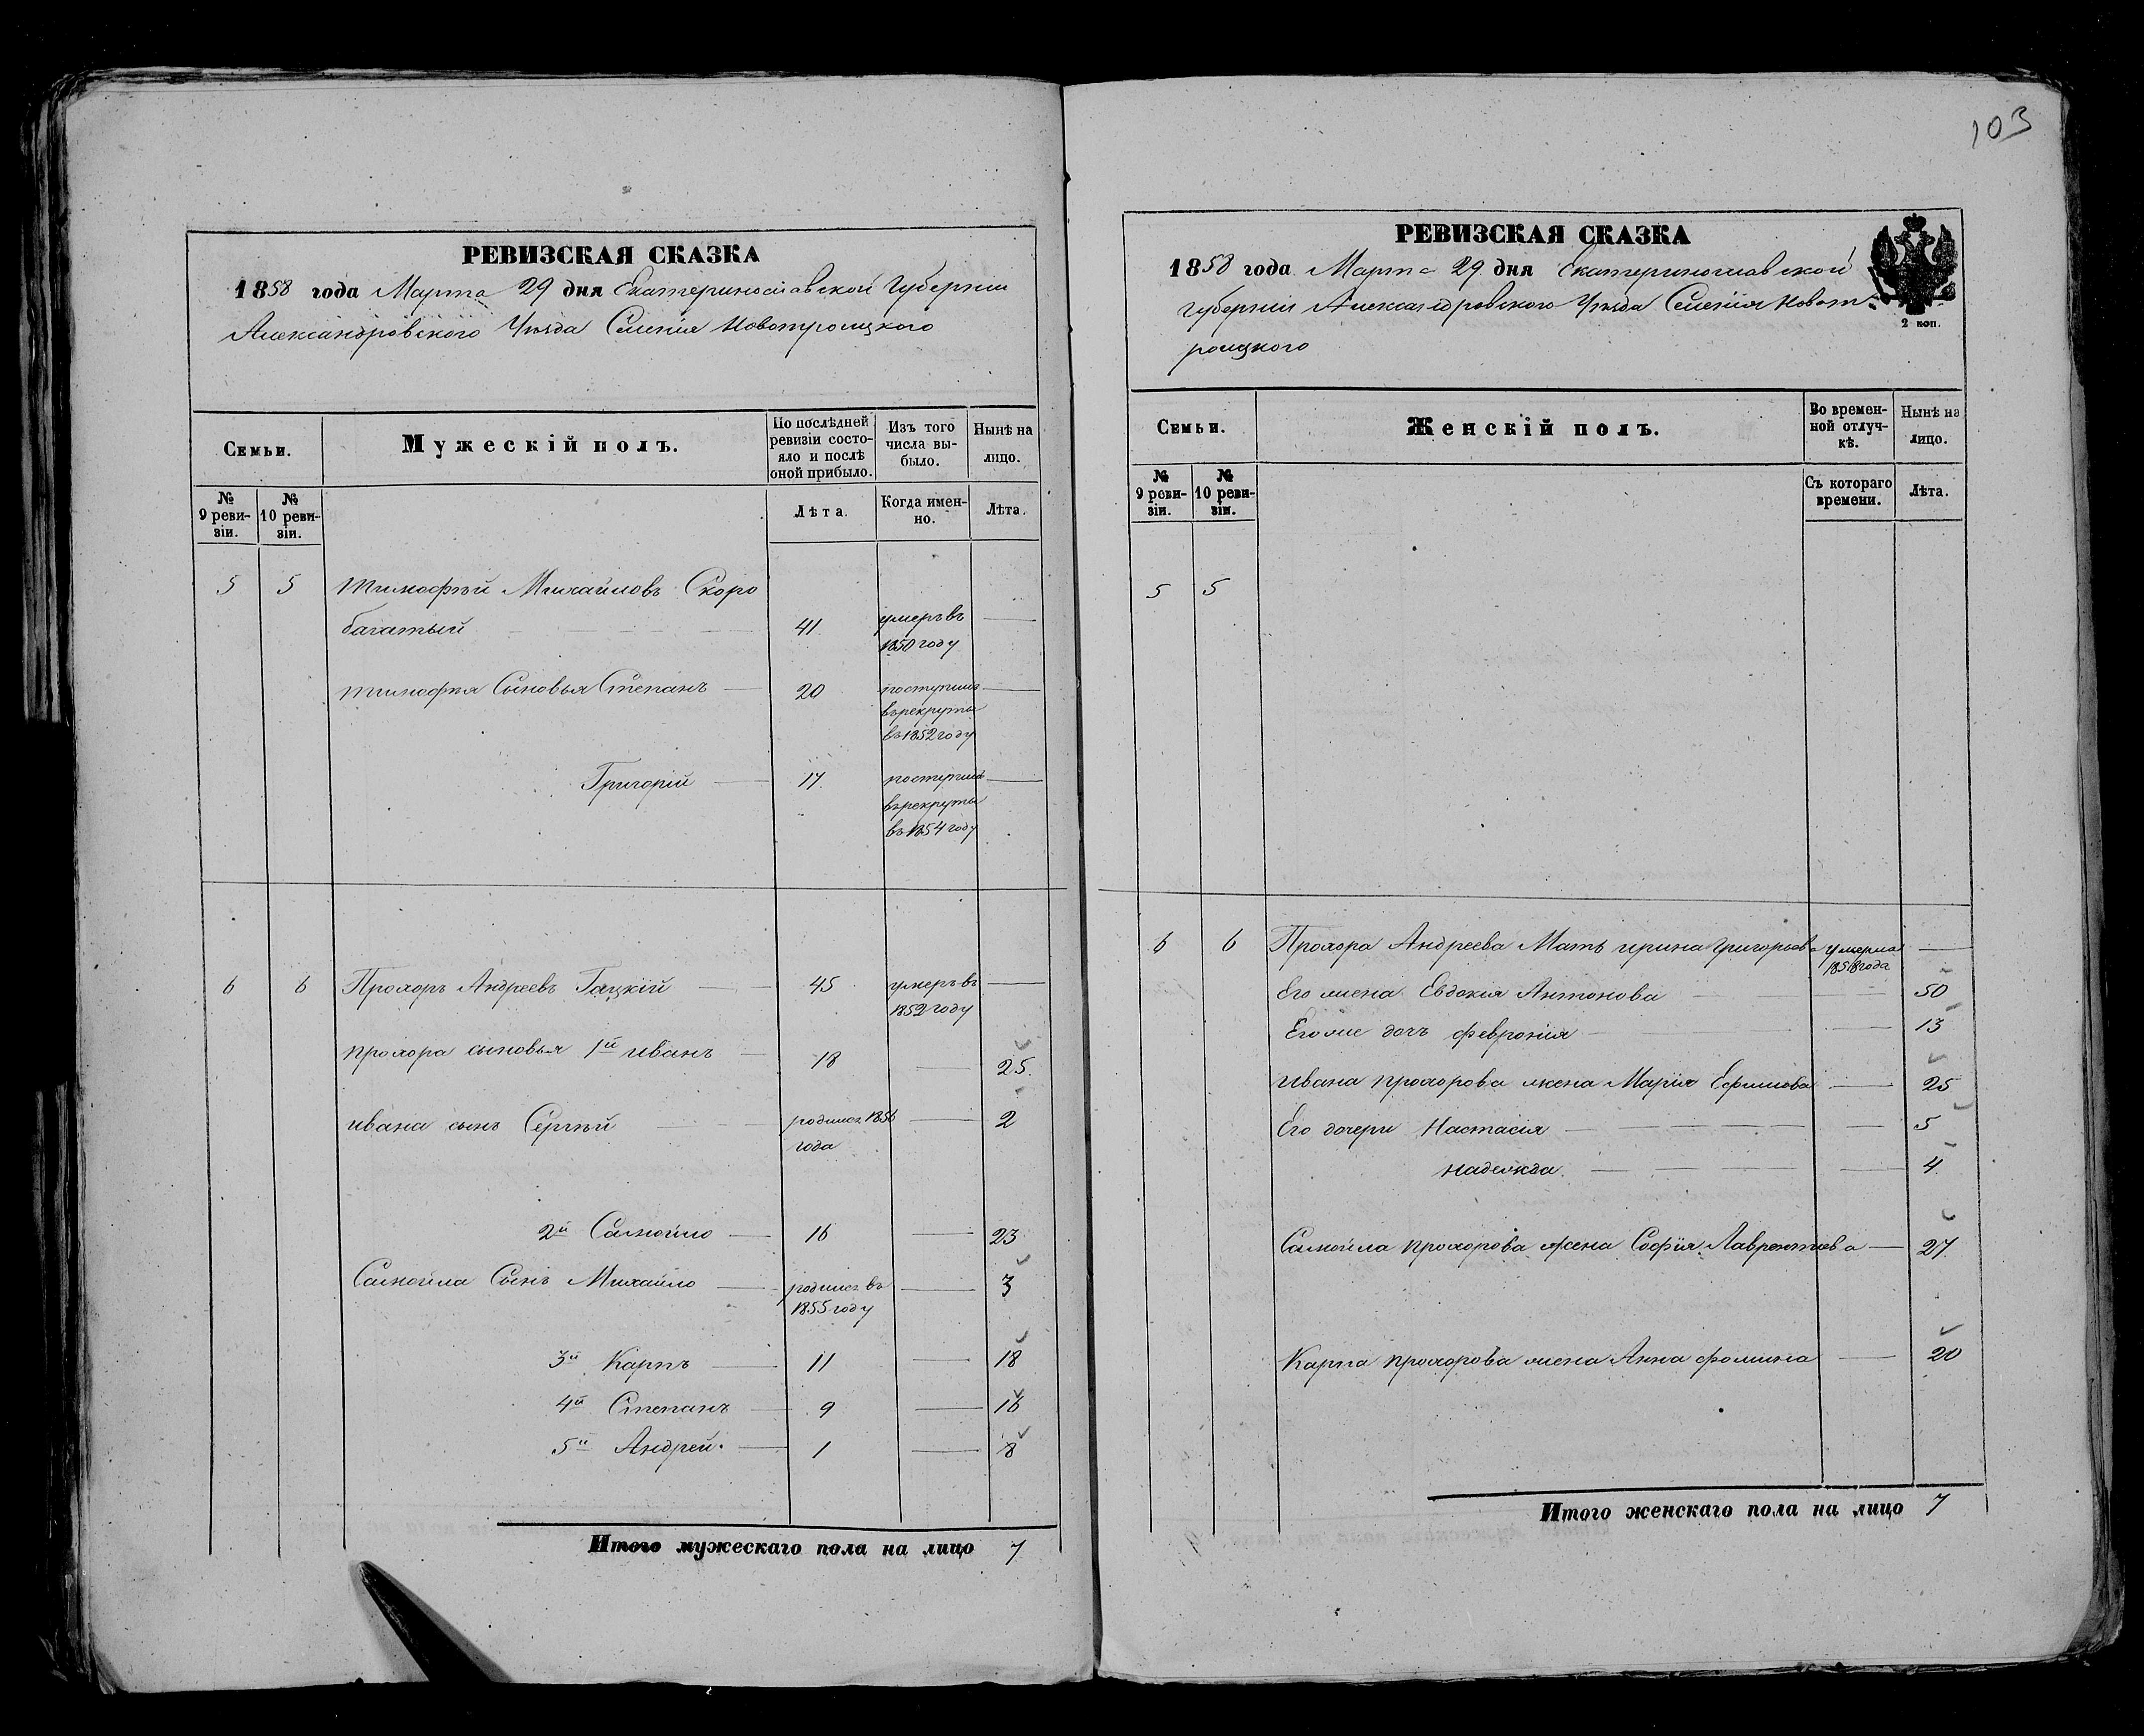 103
РЕВИЗСКАЯ СКАЗКА
1858 года Марта 29 дня Екатеринославской Губернiи
Александровского Уѣзда Селенiя Новотроицкого
Семьи.
Мужескiй полъ.
По послѣдней ревизiи состояло и послѣ оной прибыло.
Изъ того числа выбыло.
Нынѣ на лицо.
№ 9 ревизiи.
№ 10 ревизiи.
Лѣта.
Когда именно.
Лѣта.
5 5 Тимофѣй Михайловъ Скоро
багатый 41 умеръ въ
1850 году
тимофѣя Сыновья Степанъ 20 поступилъ
въ рекруты
въ 1852 году
Григорiй 17 поступилъ
въ рекруты
въ 1854 году
6 6 Прохоръ Андреевъ Гацкiй 45 умеръ въ
1852 году
прохора сыновья 1й иванъ 18 25
ивана сынъ Сергѣй родился 1856 2
года
2й Самойло 16 23
Самойла Сынъ Михайло родился въ 3
1855 году
3й Карпъ 11 18
4й Степанъ 9 16
5й Андрей 1 8
Итого мужескаго пола на лицо 7
РЕВИЗСКАЯ СКАЗКА
1858 года Марта 29 дня Екатеринославской
губернiи Александровского Уѣзда Селенiя Новот
роицкого
2 коп.
Семьи.
Женскiй полъ.
Во временной отлучкѣ.
Нынѣ на лицо.
№ 9 ревизiи.
№ 10 ревизiи.
Съ котораго времени.
Лѣта.
5 5
6 6 Прохора Андреева Мать ирина григорьева умерла
1858 года
Его жена Евдокiя Антонова 50
Его же дочъ феврония 13
ивана прохорова жена Марiя Ефимова 25
Его дочери Настасiя 5
надежда 4
Самойла прохорова жена Софiя Лаврентiева 27
Карпа прохорова жена Анна фомина 20
Итого женскаго пола на лицо 7